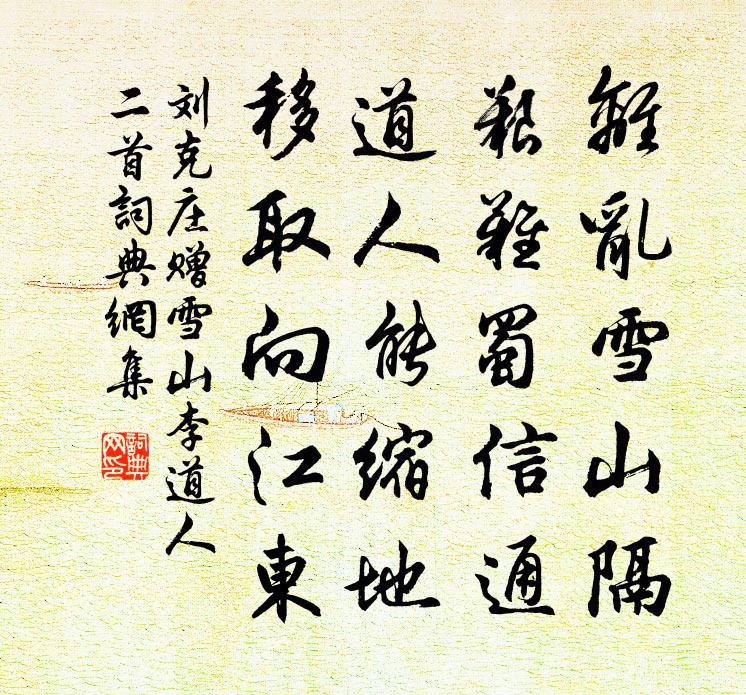 離亂雪山隔
艱難蜀信通
道人能縮地
移取向江東
刘克庄赠雪山李道人
二首詞典網集
詞典網印